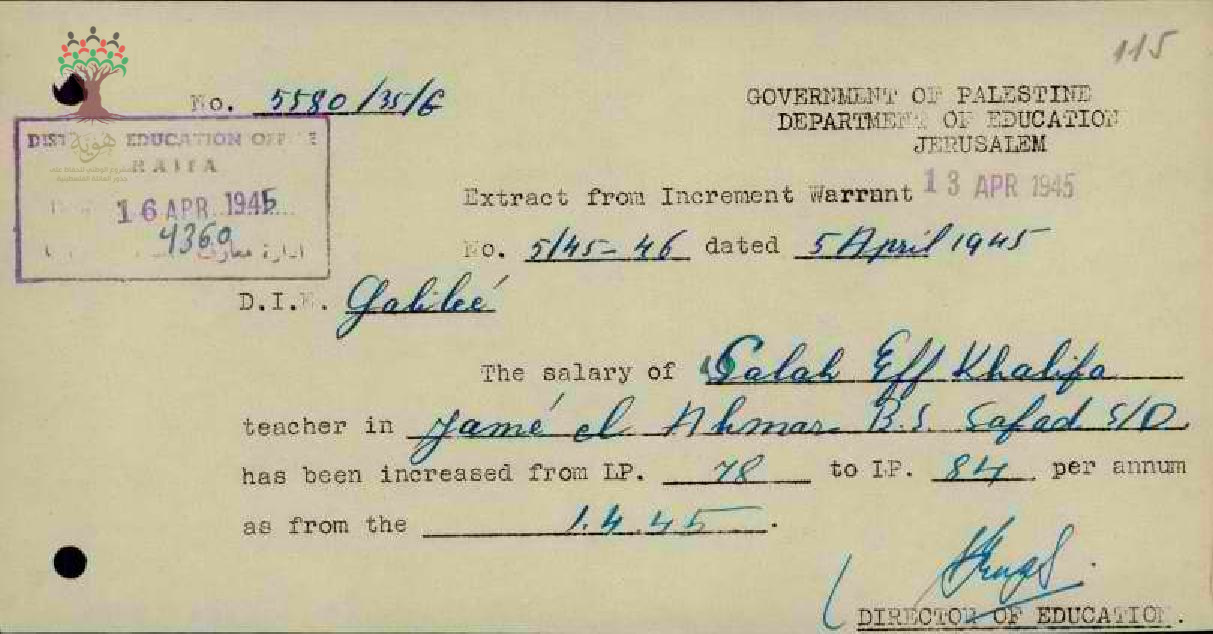 115
No. 5580/35/6
GOVERNMENT OF PALESTINE
DEPARTMENT OF EDUCATION
JERUSALEM
DIST EDUCATION OFFICE
HAIFA
16 APR 1945
4360
ادارة معارف
هوية
Extract from Increment Warrant 13 APR 1945
No. 5/45-46 dated 5 April 1945
D.I.E. Galileé
The salary of Salah Eff Khalifa
teacher in Jamé el Ahmar B.S. Safad S/D
has been increased from LP. 78 to LP. 84 per annum
as from the 1.4.45.
DIRECTOR OF EDUCATION.